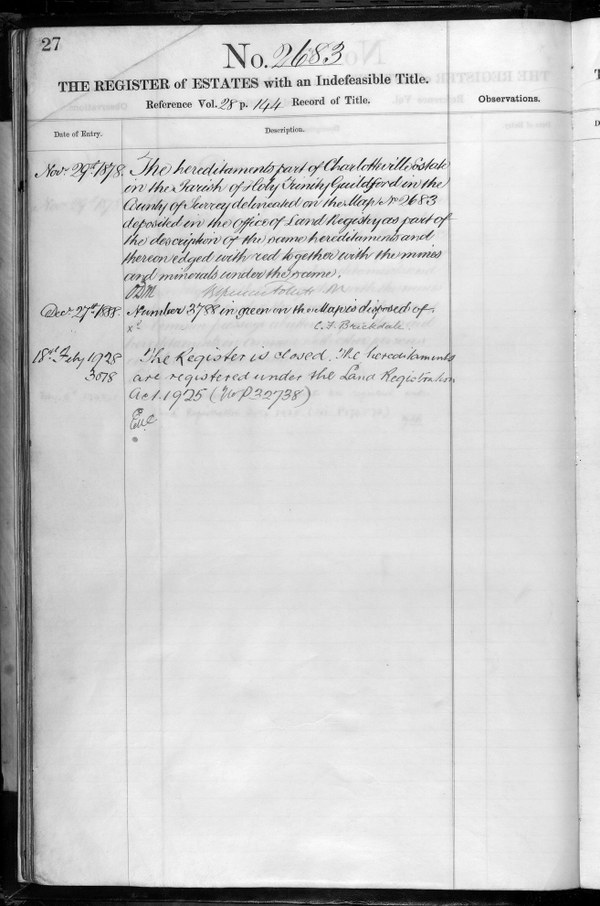 27
No. 2683
THE REGISTER of ESTATES with an Indefeasible Title.
Reference Vol. 28 p. 144 Record of Title.
Observations.
Date of Entry.
Description.
Novr 29th 1878.
The hereditaments part of Charlotteville Estate
in the Parish of Holy Trinity Guildford in the
County of Surrey delineated on the Map No 2683
deposited in the Office of Land Registry as part of
the description of the same hereditaments and
thereon edged with red together with the mines
and minerals under the same.
Decr 27th 1888.
Number 3788 in green on the Map is disposed of.
C. F. Brickdale
18th Feby 1928
3078
The Register is closed. The hereditaments
are registered under the Land Registration
Act 1925 (No P32738)